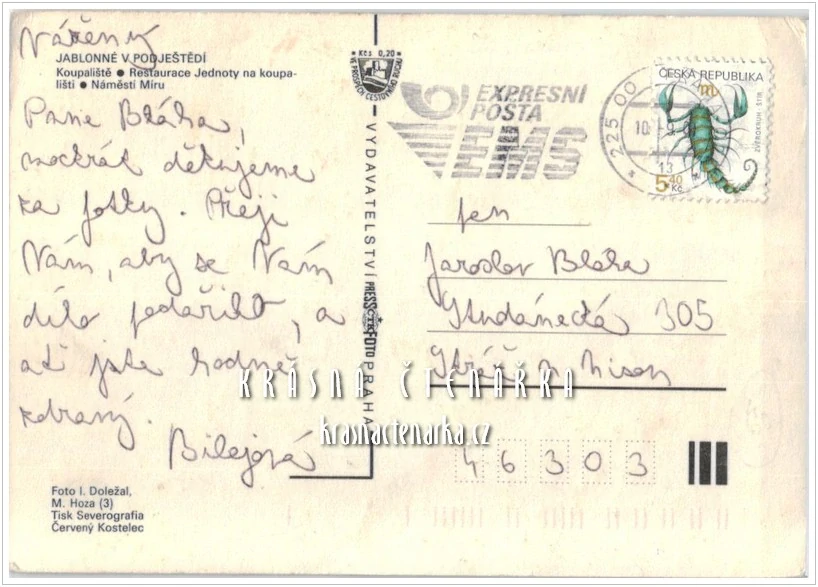 Vážený
JABLONNÉ V PODJEŠTĚDÍ
Koupaliště ● Restaurace Jednoty na koupa-
lišti ● Náměstí Míru
Pane Bláha,
mockrát děkujeme
za fotky. Přeji
Vám, aby se Vám
dílo podařilo, a
ať jste hodně
zdravý.
Bilejová
Foto I. Doležal,
M. Hoza (3)
Tisk Severografia
Červený Kostelec
Kčs 0,20
VE PROSPĚCH CESTOVNÍHO RUCHU
VYDAVATELSTVÍ PRESSFOTO PRAHA
ČTK
EXPRESNÍ
POŠTA
EMS
225 00
10. -9.
13
ČESKÁ REPUBLIKA
ZVĚROKRUH - ŠTÍR
5,40
Kč
pan
Jaroslav Bláha
Studánecká 305
Stráž n Nisou
46303
KRÁSNÁ ČTENÁŘKA
krasnactenarka.cz